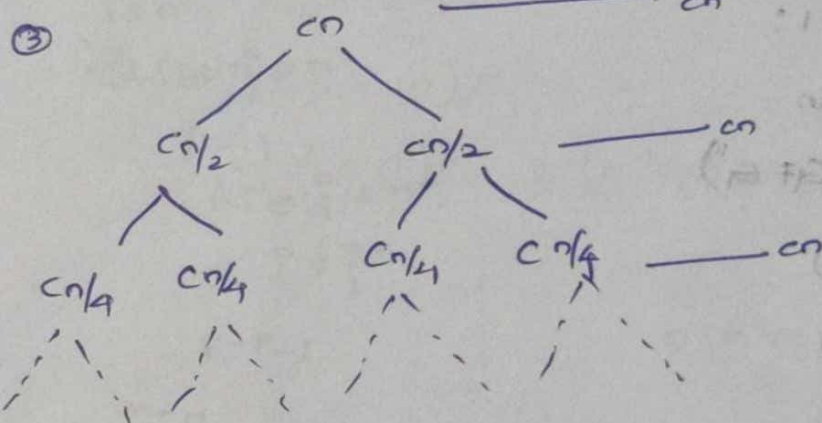 cn
③ cn
cn/2 cn/2 cn
cn/4 cn/4 cn/4 cn/4 cn